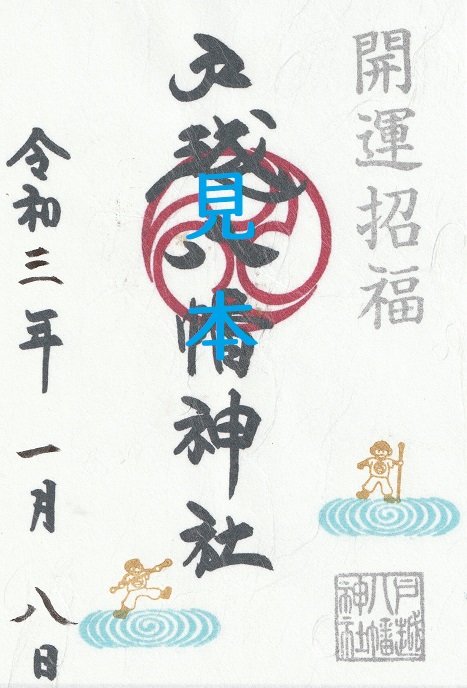 開運招福
戸越八幡神社
見本
令和三年一月八日
戸越
八幡
神社